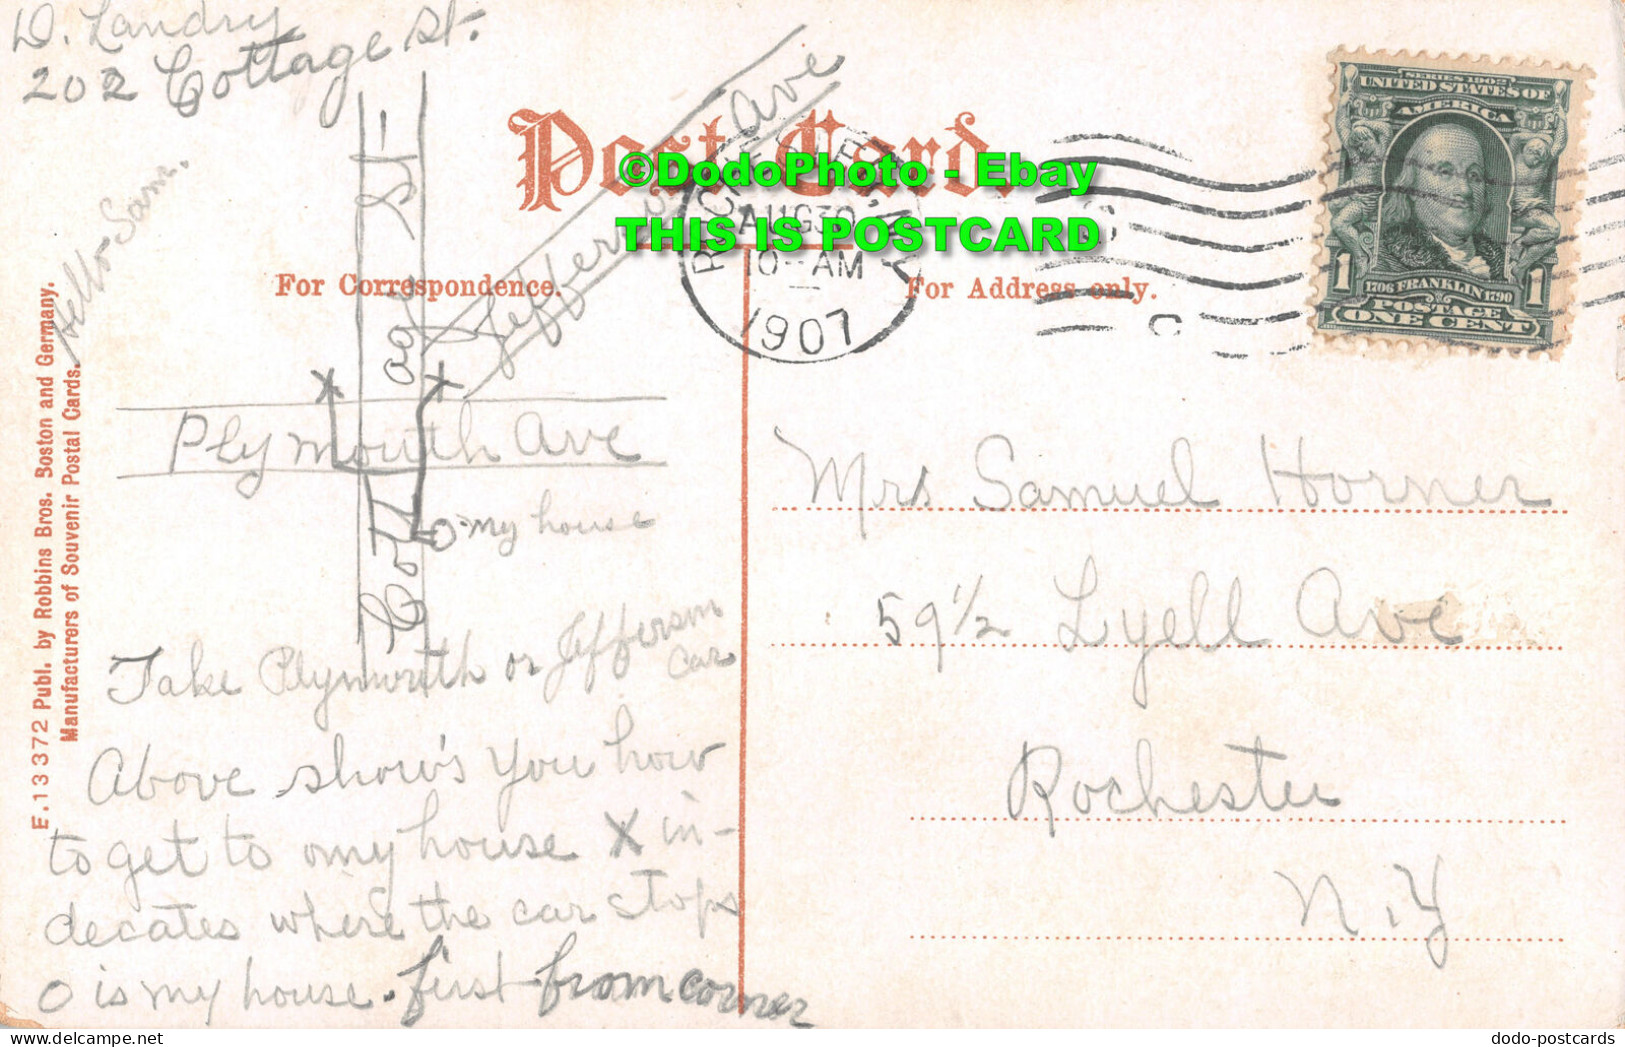 D. Landry
202 Cottage St.
Hello Sam.
Post Card.
©DodoPhoto - Ebay
THIS IS POSTCARD
For Correspondence.
For Address only.
ROCHESTER, N.Y.
AUG 30
10-AM
1907
SERIES 1902
UNITED STATES OF
AMERICA
1706 FRANKLIN 1790
POSTAGE
1 ONE CENT 1
Jefferson Ave
Cottage St-
Plymouth Ave
X
X
O-my house
Take Plymouth or Jefferson
car
Above show's you how
to get to my house X in-
decates where the car stops
O is my house. first from corner
Mrs Samuel Horner
59 1/2 Lyell Ave
Rochester
N.Y
E.13372 Publ. by Robbins Bros. Boston and Germany.
Manufacturers of Souvenir Postal Cards.
dodo-postcards